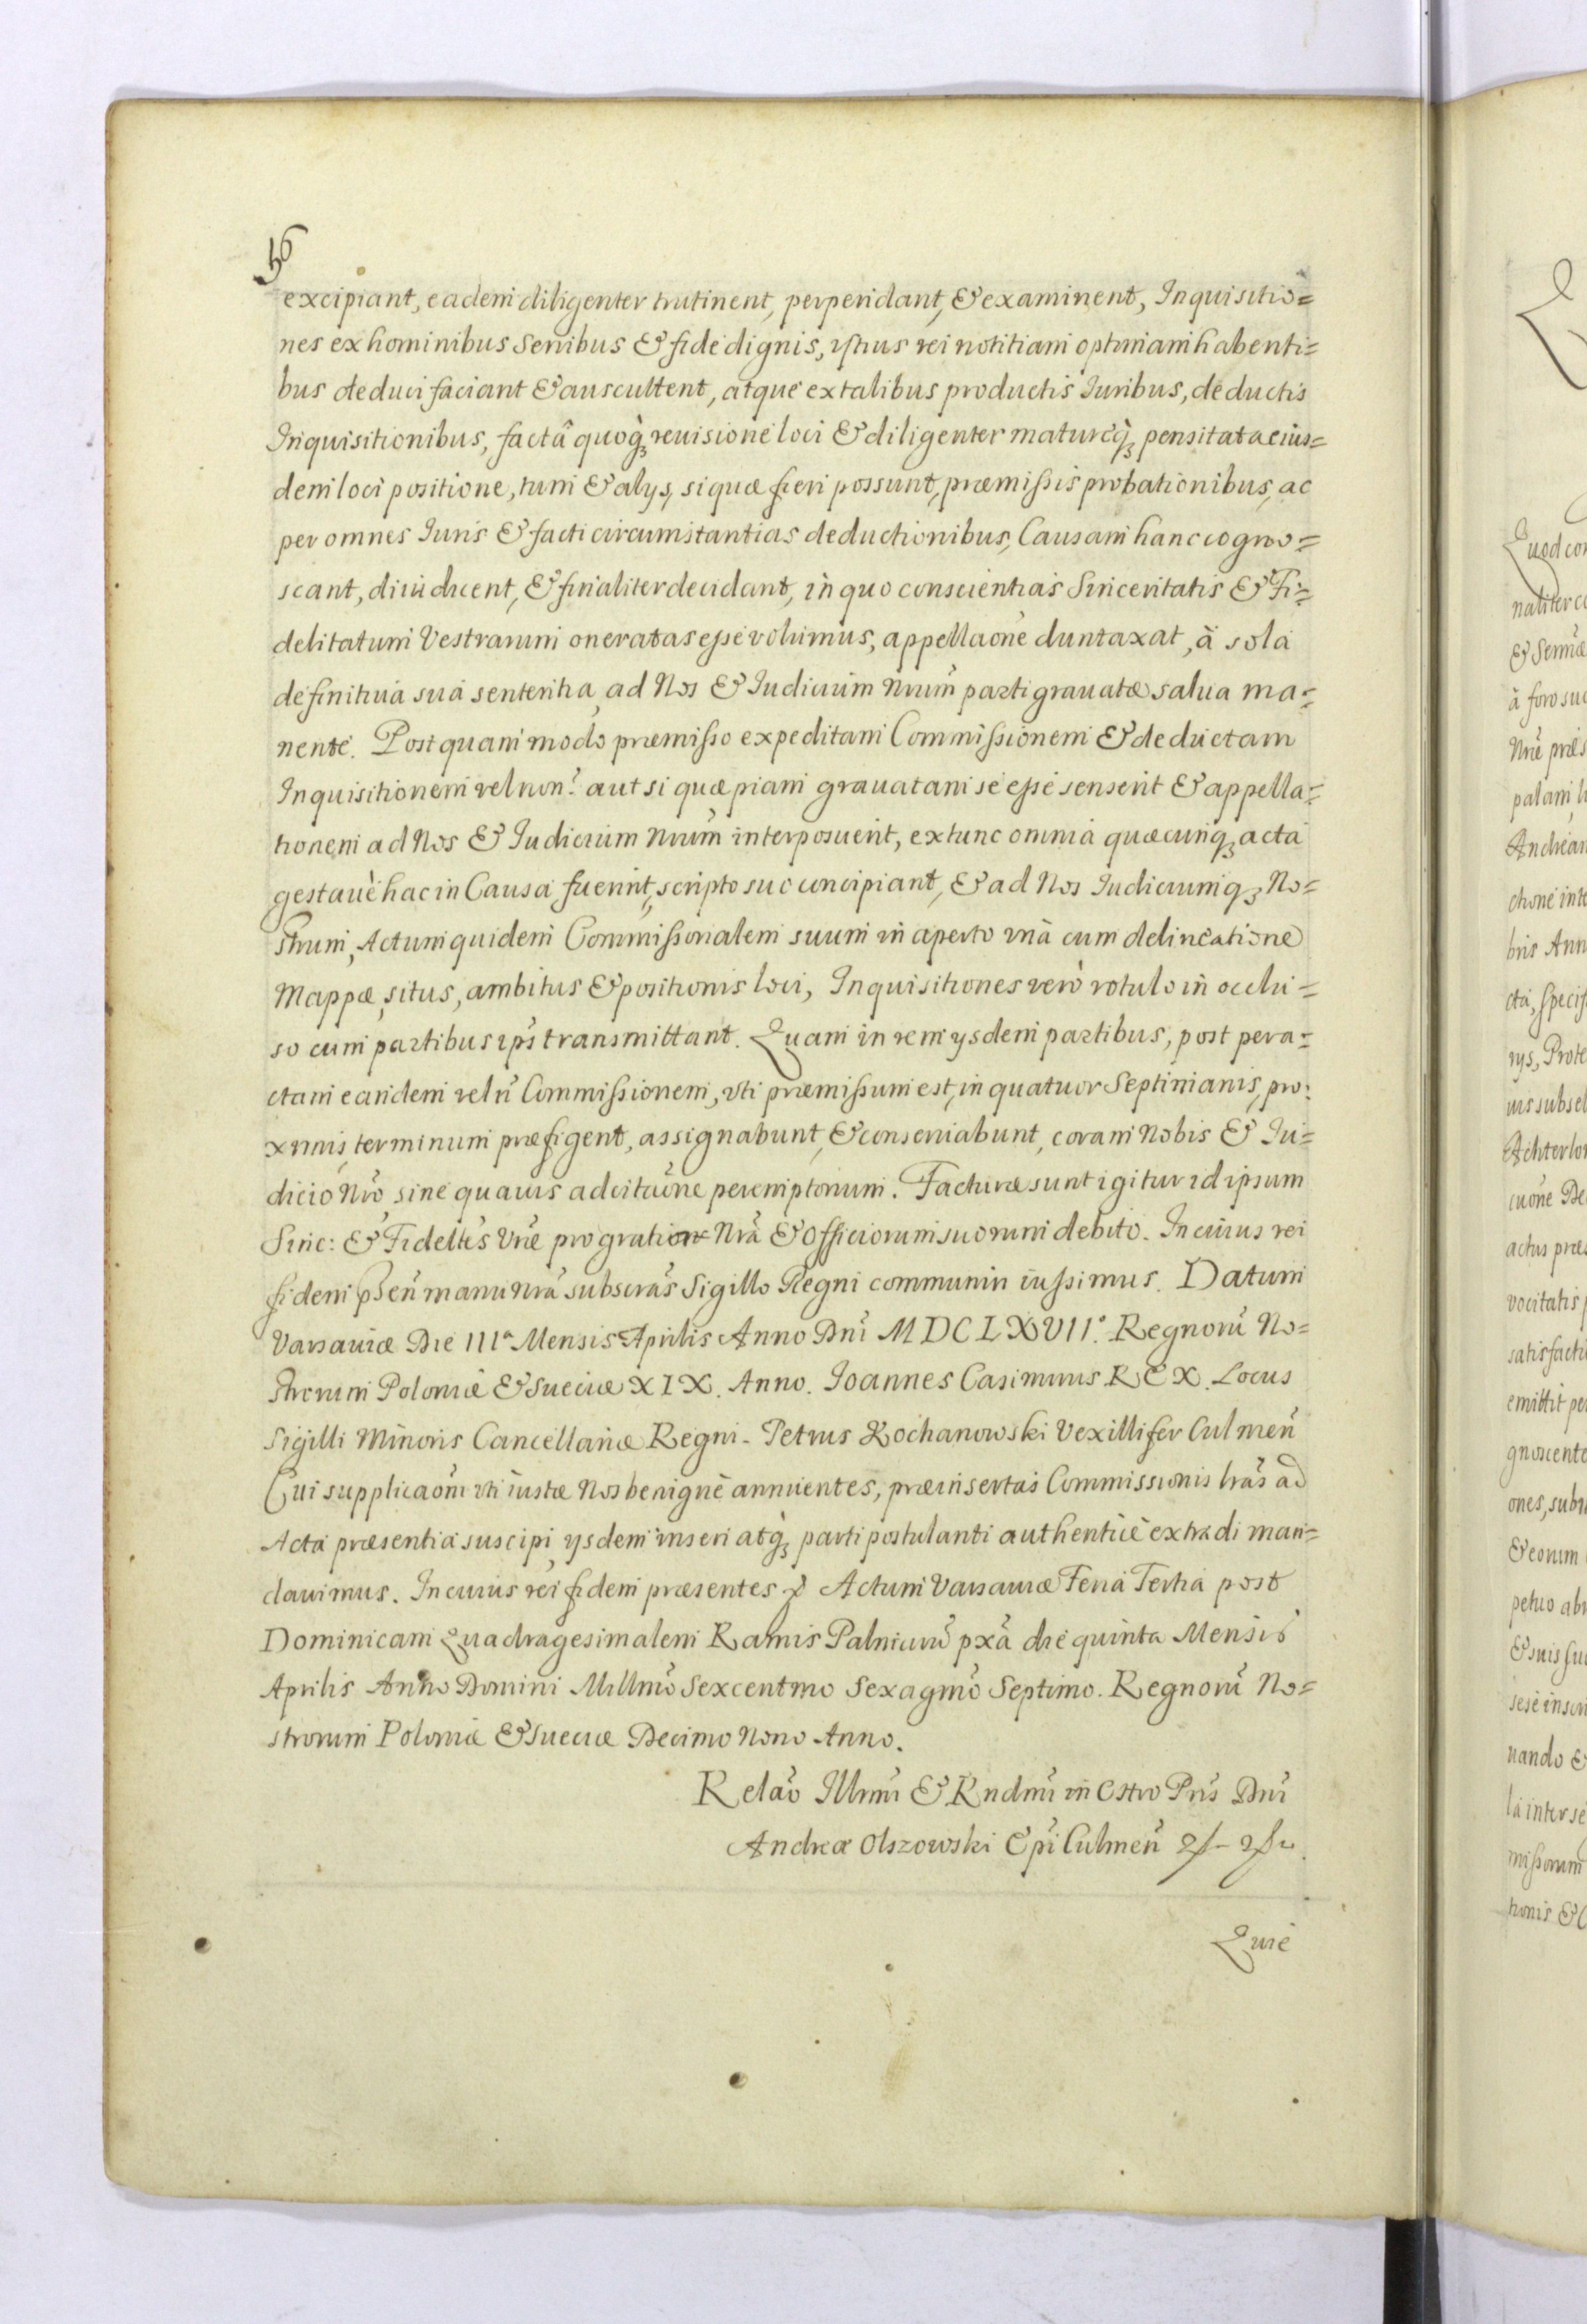 excipiant, eadem diligenter trutinent, perpendant, & examinent, Inquisitio=
nes ex hominibus senibus & fide dignis, istius rei notitiam optimam habenti=
bus deduci faciant & auscultent, atque ex talibus productis Iuribus, deductis
Inquisitionibus, factâ quoq; reuisione loci & diligenter matureq; pensitata eius=
dem loci positione, tum & alys, si quæ fieri possunt, præmissis probationibus, ac
per omnes Iuris & facti circumstantias deductionibus, Causam hanc cogno=
scant, diiudicent, & finaliter decidant, in quo conscientias Sinceritatis & Fi=
delitatum Vestrarum oneratas esse volumus, appellaōne duntaxat, à sola
definitiua sua sententia, ad Nos & Iudicium Nrum̄ parti grauatæ salua ma=
nente. Postquam modo præmisso expeditam Commissionem & deductam
Inquisitionem vel non? aut si quæpiam grauatam se esse senserit & appella=
tionem ad Nos & Iudicium Nrum̄ interposuerit, extunc omnia quæcunq; acta
gestauè hac in Causa fuerint, scripto suo concipiant, & ad Nos Iudiciumq; No=
strum, Actum quidem Commissionalem suum in aperto vnà cum delineatione
Mappæ, situs, ambitus & positionis loci, Inquisitiones verò rotulo in occlu=
so cum partibus ips̄ transmittant. Quam in rem ysdem partibus, post pera=
ctam eandem vel n̄ Commissionem, vti præmissum est, in quatuor Septimanis, pro=
ximis, terminum præfigent, assignabunt, & conseruabunt, coram Nobis & Iu=
dicio Nrō, sine quauis adcitaōne peremptorium. Facturæ sunt igitur id ipsum
Sinc: & Fidelt̄s Vrē̄ pro gratia Nrā & Officiorum suorum debito. In cuius rei
fidem pn̄sen̄ manu Nrā subscrās Sigillo Regni communiri iussimus. Datum
Varsauiæ Die IIIᵃ Mensis Aprilis Anno Dnī MDCLXVII°. Regnorū No=
strorum Poloniæ & Sueciæ XIX. Anno. Ioannes Casimirus REX. Locus
Sigilli Minoris Cancellariæ Regni - Petrus Kochanowski Vexillifer Culmen̄
Cui supplicaōni vti iustæ Nos benignè annuentes, præinsertas Commissionis lrās ad
Acta præsentia suscipi, ysdem inseri atq; parti postulanti authenticè extradi man=
dauimus. In cuius rei fidem præsentes Actum Varsauiæ Feria Tertia post
Dominicam Quadragesimalem Ramis Palmarū pxā die quinta Mensis
Aprilis Anno Domini Millmō Sexcentmo Sexagmō Septimo. Regnorū No=
strorum Poloniæ & Sueciæ Decimo Nono Anno.
Relaō Illmi & Rndmi in Chro Pris Dnī
Andreæ Olszowski Epī Culmen̄
Quie